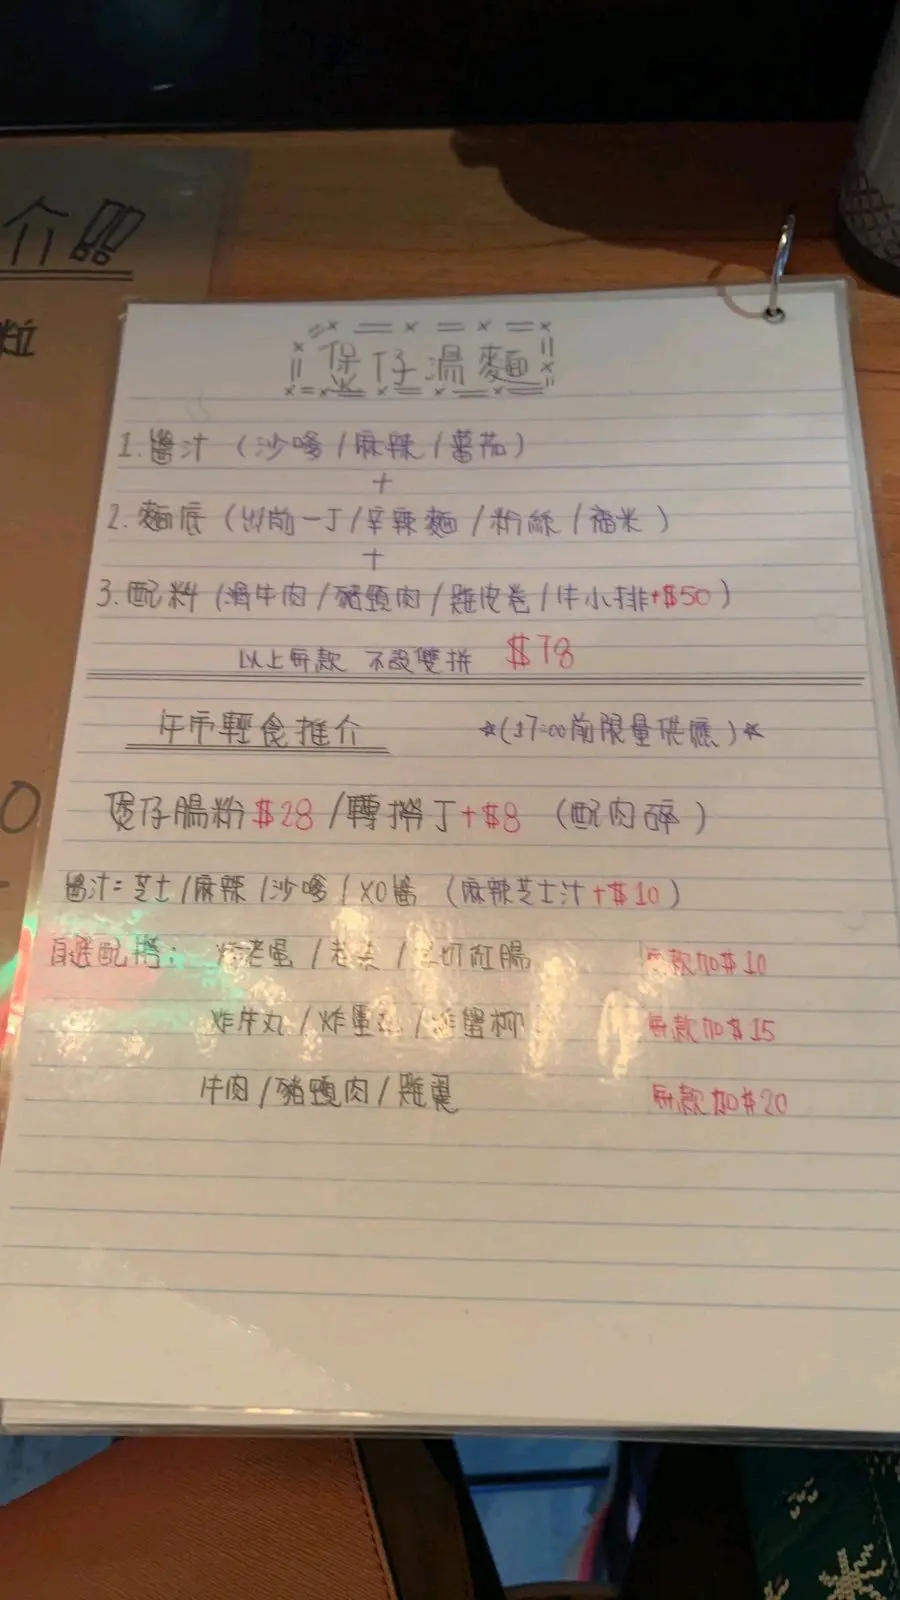 介!!
粒
煲仔湯麵
1. 醬汁 (沙嗲 / 麻辣 / 蕃茄)
+
2. 麵底 (出前一丁 / 辛辣麵 / 粉絲 / 稻米)
+
3. 配料 (滑牛肉 / 豬頸肉 / 雞皮卷 / 牛小排+$50)
以上每款 不設雙拼 $78
午市輕食推介 *(17:00前限量供應)*
煲仔腸粉 $28 / 轉撈丁+$8 (配肉碎)
醬汁: 芝士 / 麻辣 / 沙嗲 / XO醬 (麻辣芝士汁+$10)
自選配搭: / / 切紅腸 每款加$10
炸牛丸 / 炸墨丸 / 炸蟹柳 每款加$15
牛肉 / 豬頸肉 / 雞翼 每款加$20